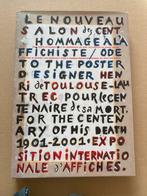 LE NOUVEAU
SALON des CENT.
HOMMAGE À L'A
FFICHISTE/ODE
TO THE POSTER
DESIGNER HEN
RI de TOULOUSE-LAU
TREC POUR le CEN
TENAIRE de sa MORT.
FOR THE CENTEN
ARY OF HIS DEATH
1901-2001·EXPO
SITION INTERNATIO
NALE D'AFFICHES.